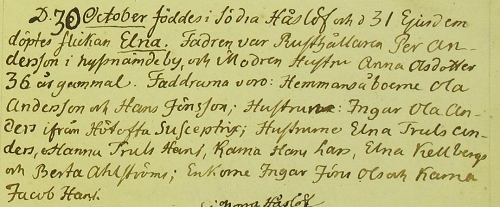 D. 30 October föddes i Södra Håslöf och d 31 Ejusdem
döptes flickan Elna. Fadren var Rusthållaren Per An-
dersson i hyssnämdeby, och Modren Hustru Anna Asdotter
36 år gammal. Faddrarna voro: Hemmansåboerne Ola
Andersson och Hans Jönsson; Hustrurne: Ingar Ola An-
ders ifrån Hötofta Susceptrix; Hustrurne Elna Truls An-
ders, Hanna Truls Hans, Karna Hans Lars, Elna Kellbergs
och Berta Ahlströms; Enkorne Ingar Jöns Ols och Karna
Jacob Hans.
Håslöf